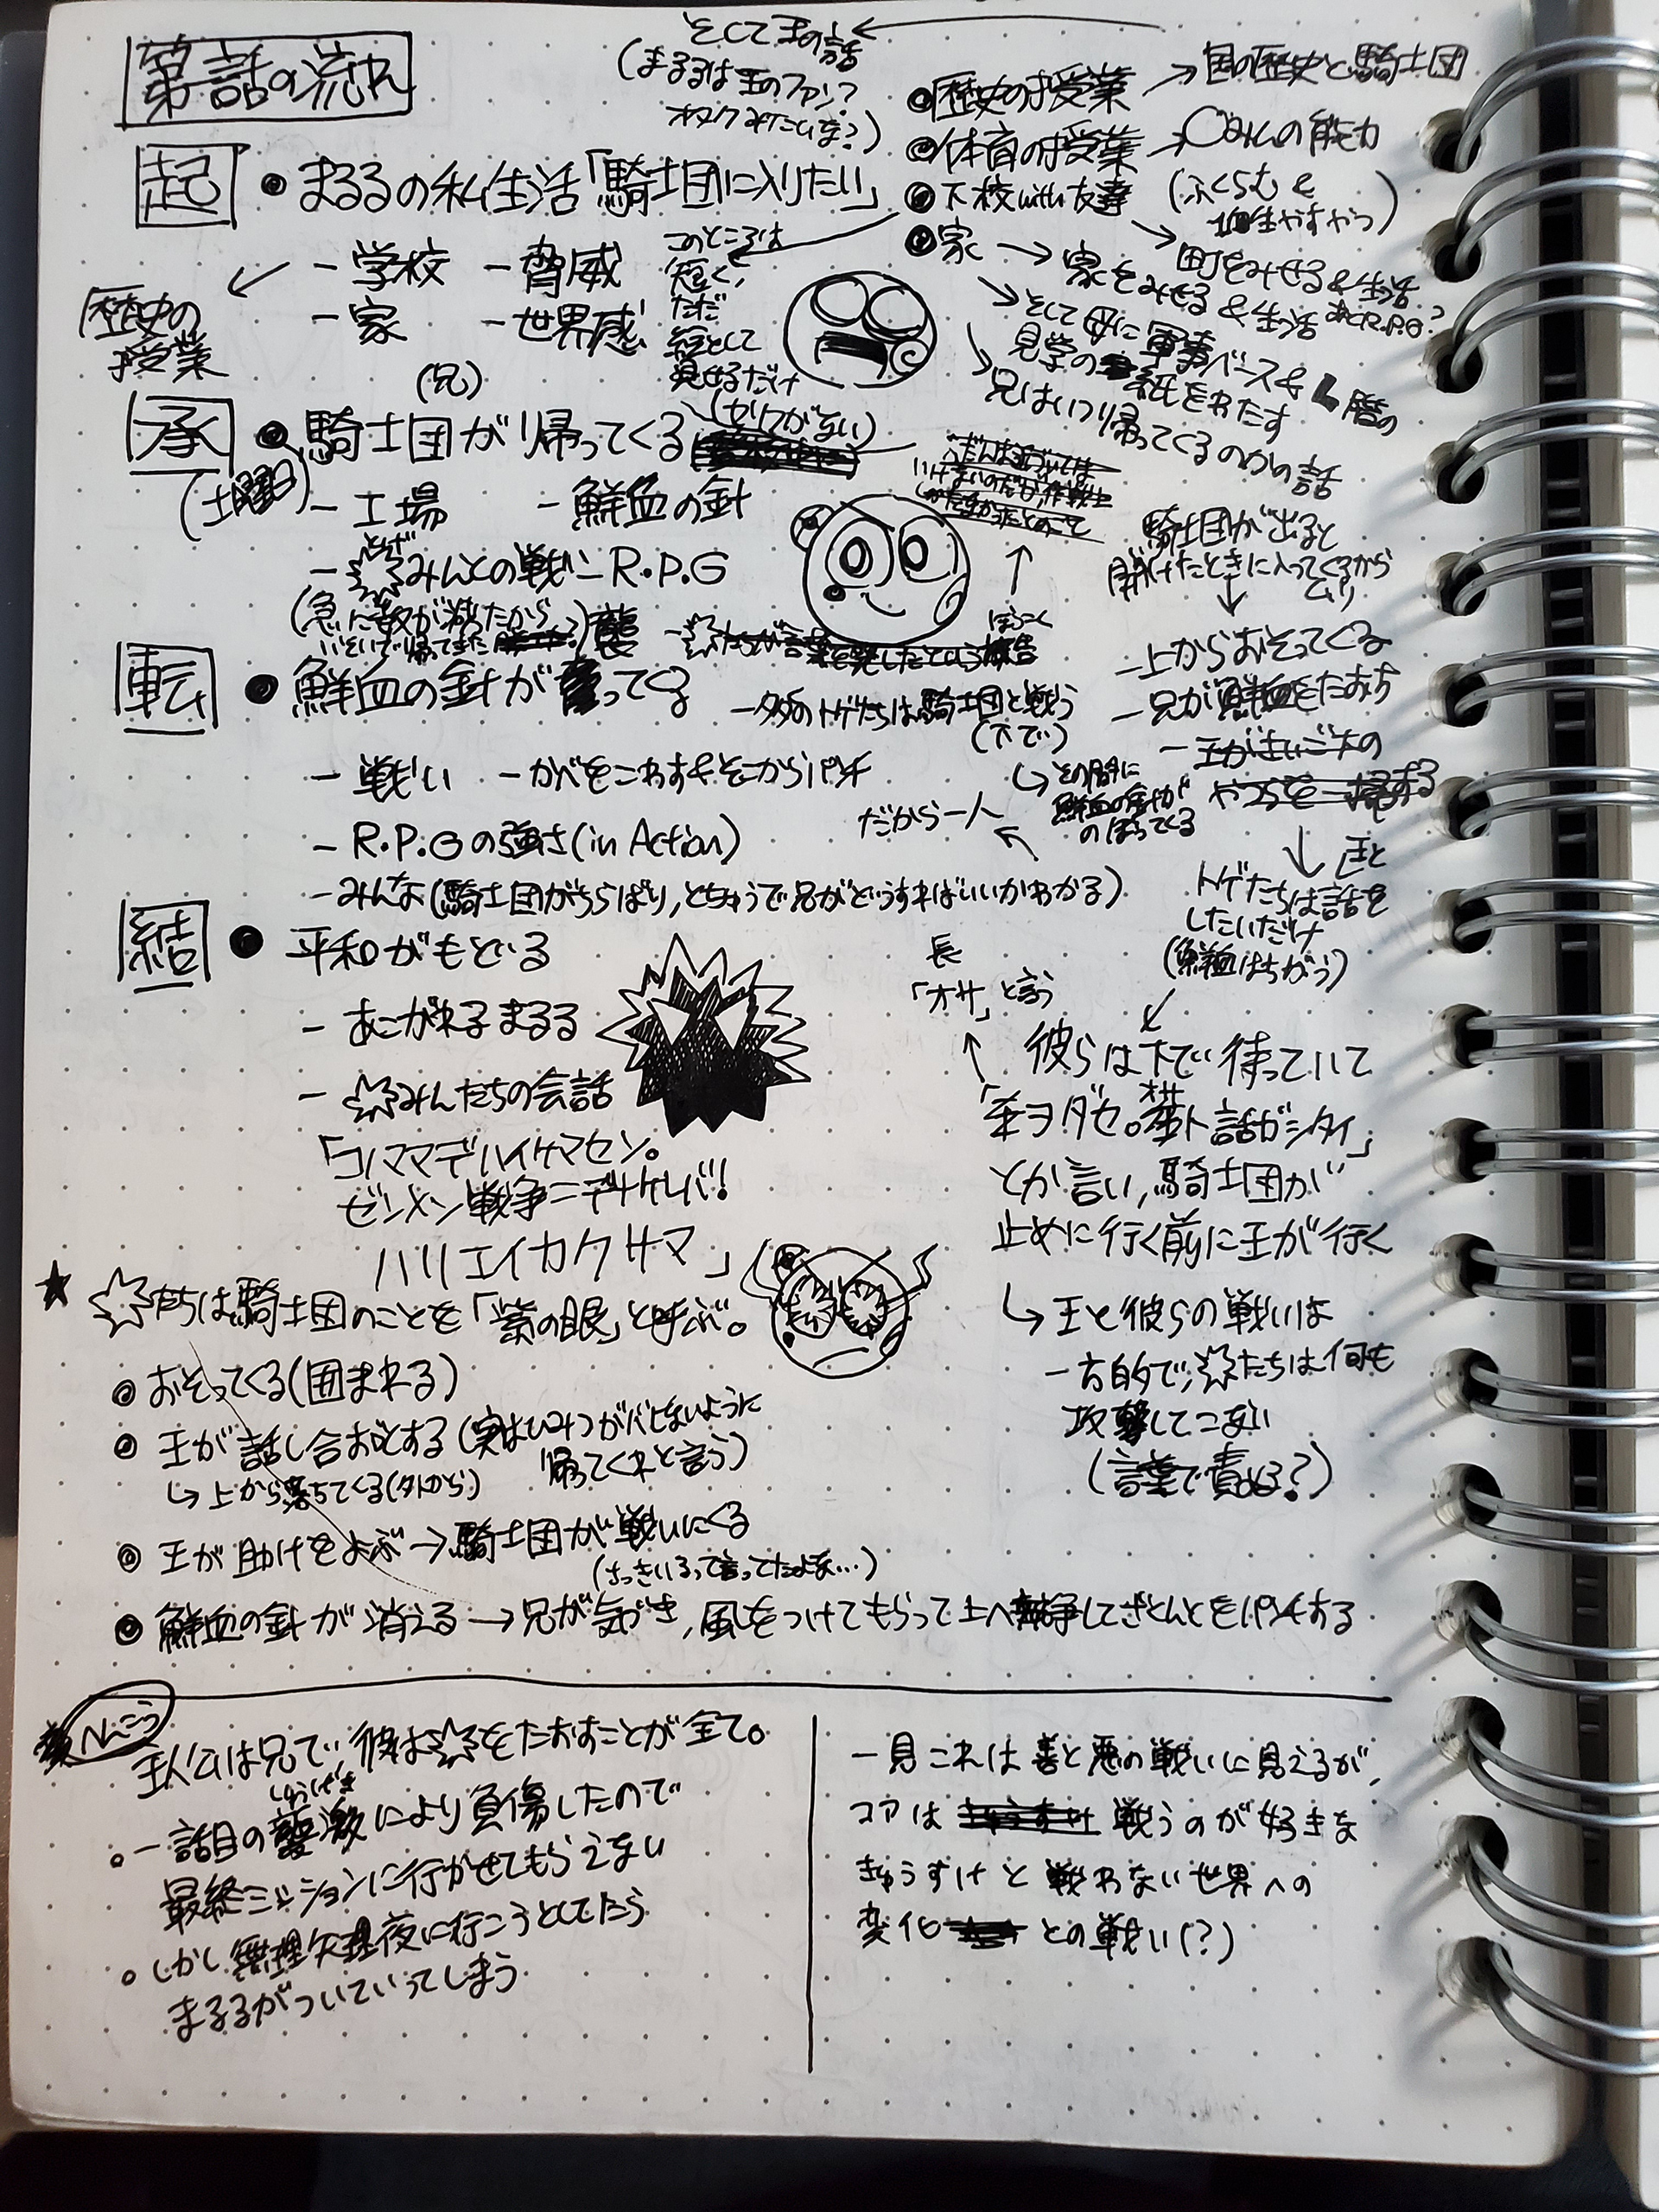 第一話の流れ
そして王の話
(まるるは王のファン?
オタクみたいな?)
歴史の授業 → 国の歴史と騎士団
体育の授業 → ○みんの能力
(ふくらむ &
生やすやつ)
下校with友達
町をみせる & 生活
あとR.P.G?
家 → 家をみせる & 生活
そして母に軍事ベース&
見学の紙をわたす
兄はいつ帰ってくるのかの話
起 ● まるるの私生活「騎士団に入りたい」
- 学校 - 脅威
- 家 - 世界感
歴史の
授業
このところは
短く、
ただ
絵として
見せるだけ
(兄)
承 ● 騎士団が帰ってくる
(セリフがない)
(土曜日)
- 工場 - 鮮血の針
とげ
- みんとの戦い - R.P.G
(急に敵が減ったから
いそいで帰ってきた
ほうこく
騎士団が出ると
開けたときに入ってくるから
ムリ
転 ● 鮮血の針が襲ってくる
- 戦い - かべをこわすそこからパンチ
- R.P.Gの強さ(in Action)
- みんな(騎士団がちらばり,とちゅうで兄がどうすればいいかわかる)
- 多数のトゲたちは騎士団と戦う
(下で)
その間に
鮮血の針が
のぼってくる
だから一人
- 上からおそってくる
- 兄が鮮血をたおす
- 王がまいごの
やつらを一掃する
王と
トゲたちは話を
したいだけ
(鮮血はちがう)
結 ● 平和がもどる
- あこがれる まるる
- みんたちの会話
「コノママデハイケマセン。
ゼンメン戦争ニデナケレバ!
ハリエイカクサマ」
長
「オサ」と言う
彼らは下で待っていて
「オサヲダセ。オサト話ガシタイ」
とか言い,騎士団が
止めに行く前に王が行く
王と彼らの戦いは
一方的で,たちは何も
攻撃してこない
(言葉で責める?)
★ たちは騎士団のことを「紫の眼」と呼ぶ。
おそってくる(囲まれる)
王が話し合おとする(実はひみつがバレないように
帰ってくれと言う)
上から落ちてくる(外から)
王が助けをよぶ → 騎士団が戦いにくる
(さっきいるって言ってたよな...)
鮮血の針が消える → 兄が気づき,風をつけてもらって上へ
へんこう
主人公は兄で,彼はをたおすことが全て。
しゅうげき
一話目の襲激により負傷したので
最終ミッションに行かせてもらえない
しかし無理矢理夜に行こうとしてたら
まるるがついていってしまう
一見これは善と悪の戦いに見えるが,
コアは 戦うのが好きな
きゅうすけと戦わない世界への
変化 との戦い(?)